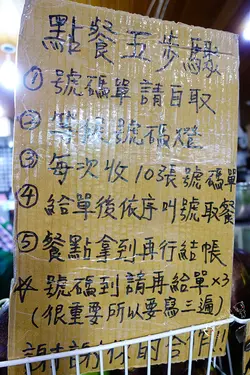 點餐五步驟
①號碼單請自取
②等候號碼燈
③每次收10張號碼單
④給單後依序叫號取餐
⑤餐點拿到再行結帳
☆號碼到請再給單×3
(很重要所以要寫三遍)
謝謝你的合作!!